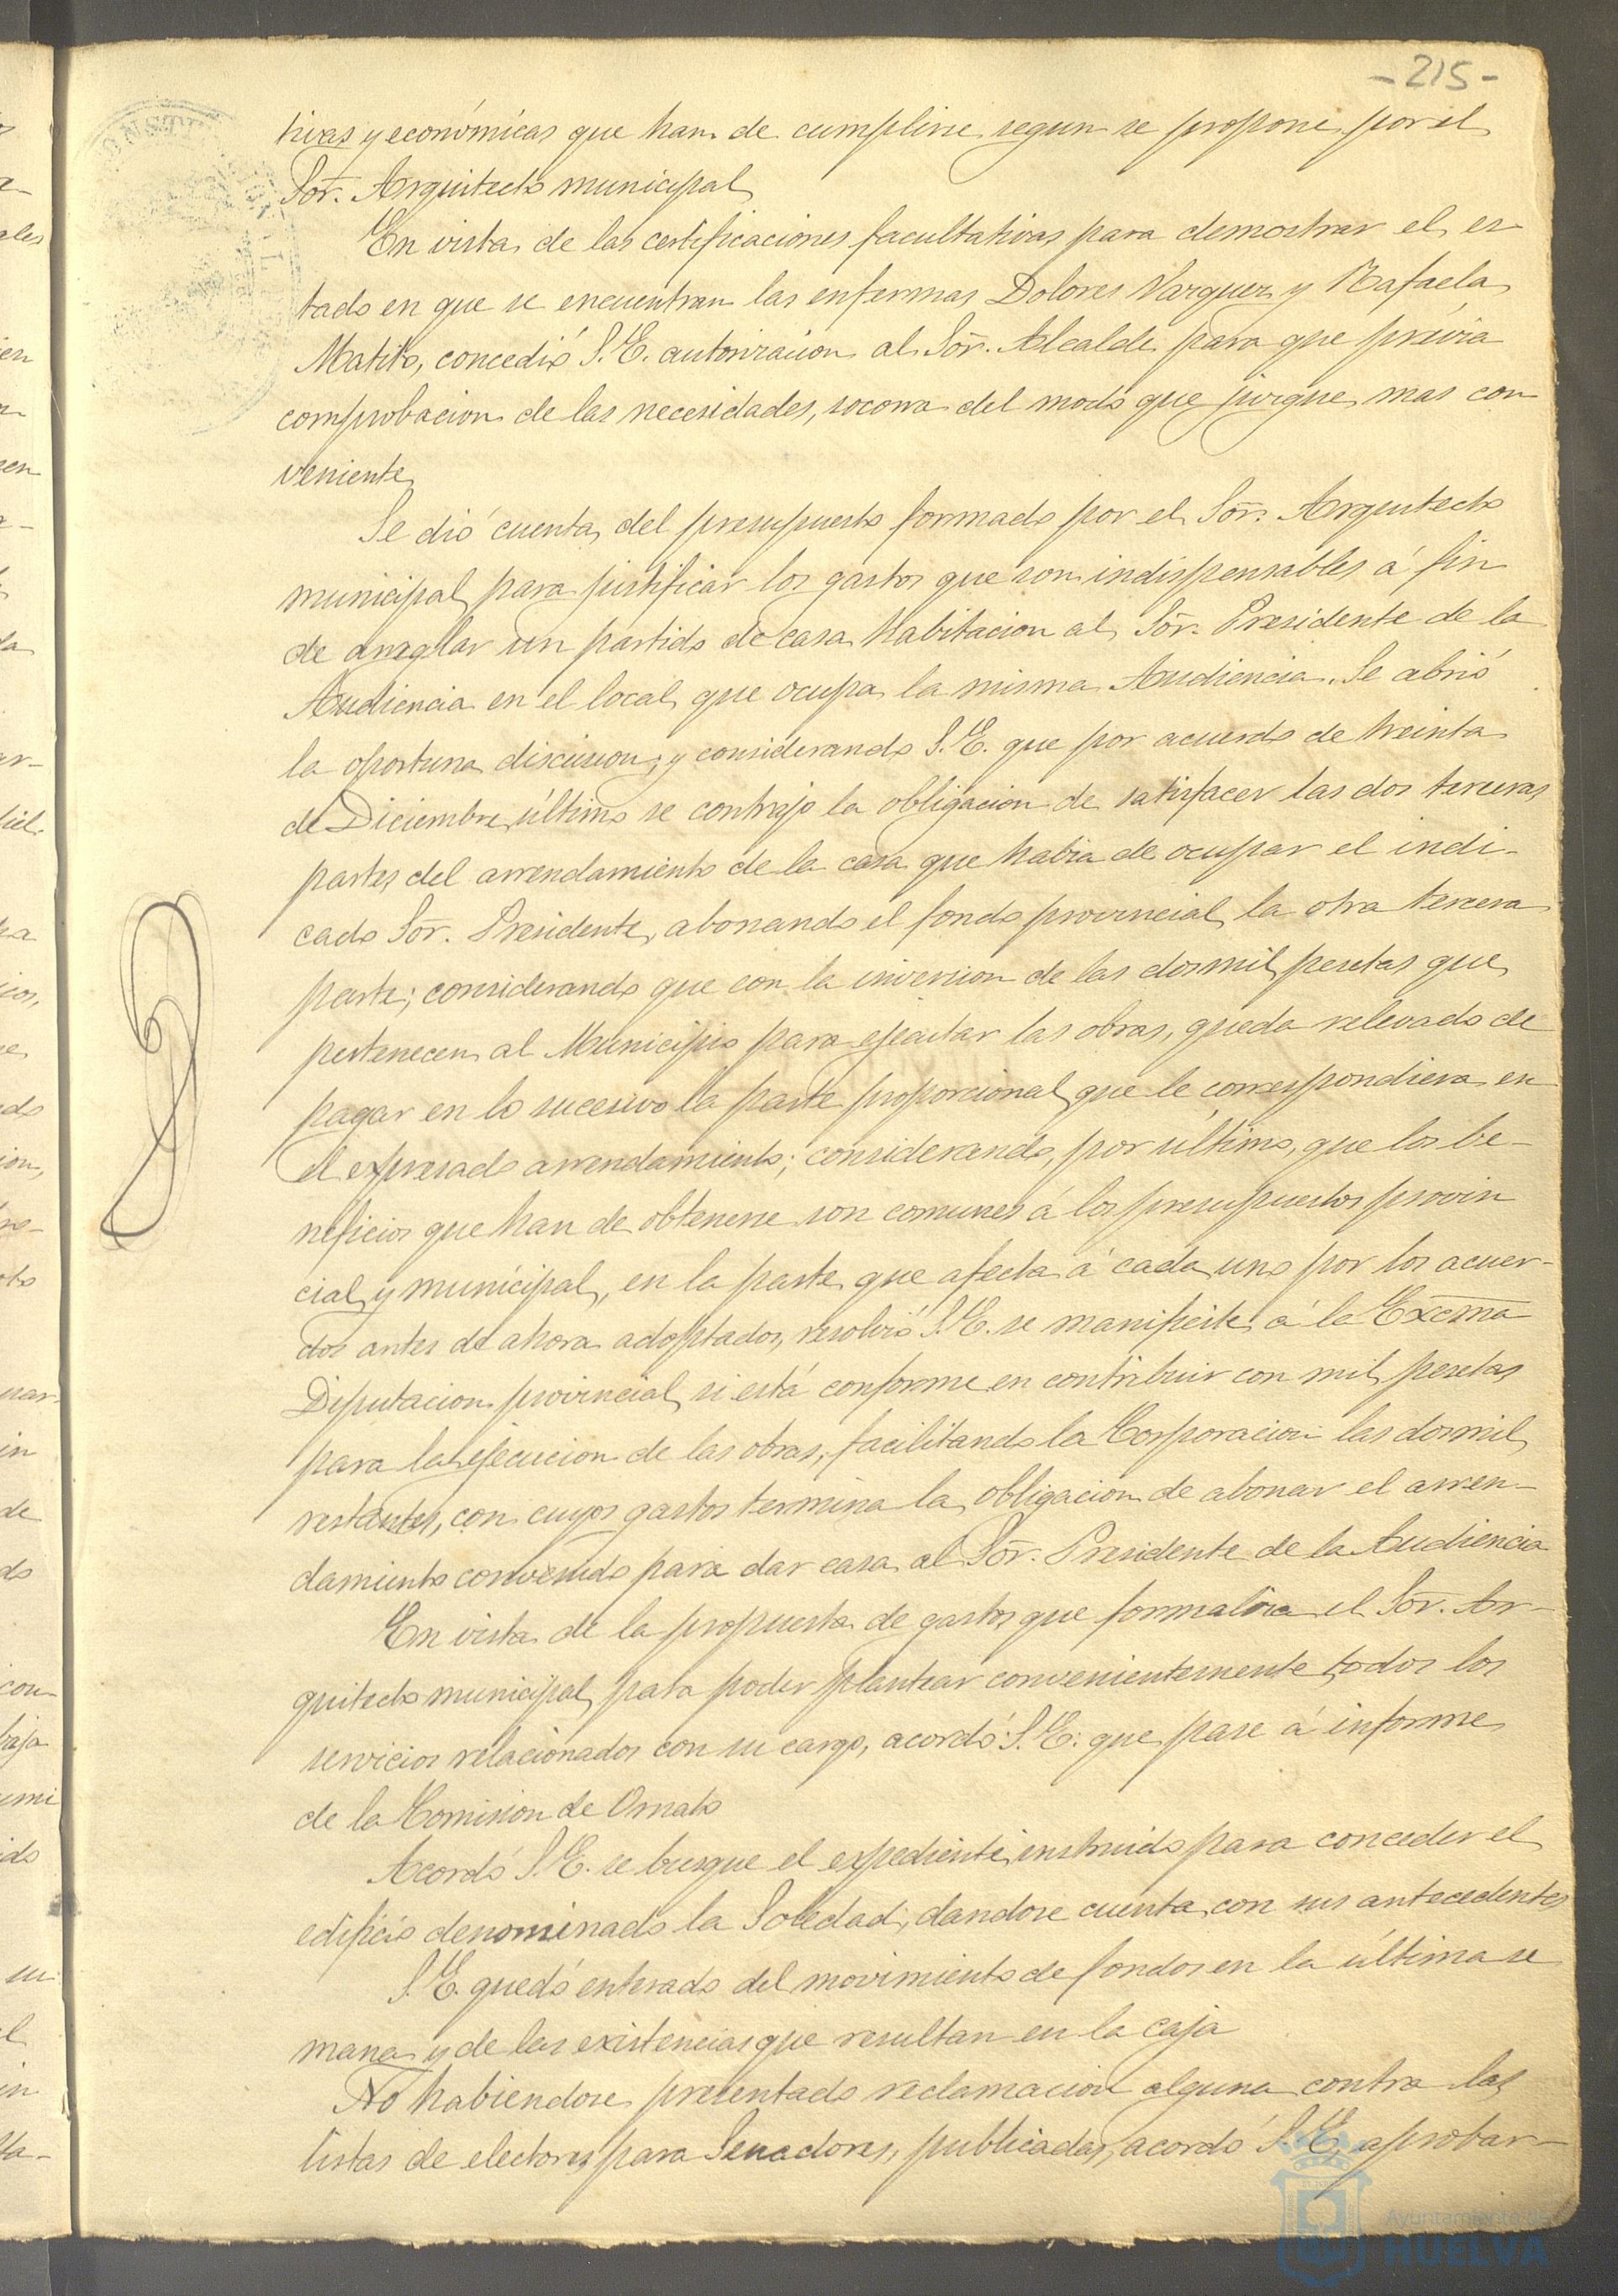 -215-
tivas y económicas que han de cumplirse segun se propone por el
Sor. Arquitecto municipal
En vista de las certificaciones facultativas para demostrar el es
tado en que se encuentran las enfermas Dolores Vazquez y Rafaela
Matito, concedió S.E. autorizacion al Sor. Alcalde para que prévia
comprobacion de las necesidades, socorra del modo que juzgue mas con
veniente
Se dió cuenta del presupuesto formado por el Sor. Arquitecto
municipal para justificar los gastos que son indispensables á fin
de arreglar un partido de casa habitacion al Sor. Presidente de la
Audiencia en el local que ocupa la misma Audiencia. Se abrió
la oportuna discusion, y considerando S.E. que por acuerdo de treinta
de Diciembre último se contrajo la obligacion de satisfacer las dos terceras
partes del arrendamiento de la casa que habia de ocupar el indi-
cado Sor. Presidente, abonando el fondo provincial la otra tercera
parte; considerando que con la inversion de las dos mil pesetas que
pertenecen al Municipio para ejecutar las obras, queda relevado de
pagar en lo sucesivo la parte proporcional que le correspondiera en
el expresado arrendamiento; considerando, por último, que los be-
neficios que han de obtenerse son comunes á los presupuestos provin
cial y municipal, en la parte que afecta á cada uno por los acuer-
dos antes de ahora adoptados, resolvió S.E. se manifieste á la Excma
Diputacion provincial si está conforme en contribuir con mil pesetas
para la ejecucion de las obras, facilitando la Corporacion las dos mil
restantes, con cuyos gastos termina la obligacion de abonar el arren-
damiento convenido para dar casa al Sor. Presidente de la Audiencia
En vista de la propuesta de gastos que formaliza el Sor. Ar-
quitecto municipal para poder plantear convenientemente todos los
servicios relacionados con su cargo, acordó S.E. que pase á informe
de la Comision de Ornato
Acordó S.E. se busque el expediente instruido para conceder el
edificio denominado la Soledad, dandose cuenta con sus antecedentes
S.E. quedó enterado del movimiento de fondos en la última se
mana y de las existencias que resultan en la caja
No habiendose presentado reclamacion alguna contra las
listas de electores para Senadores, publicadas, acordó S.E. aprobar-
Ayuntamiento de
HUELVA